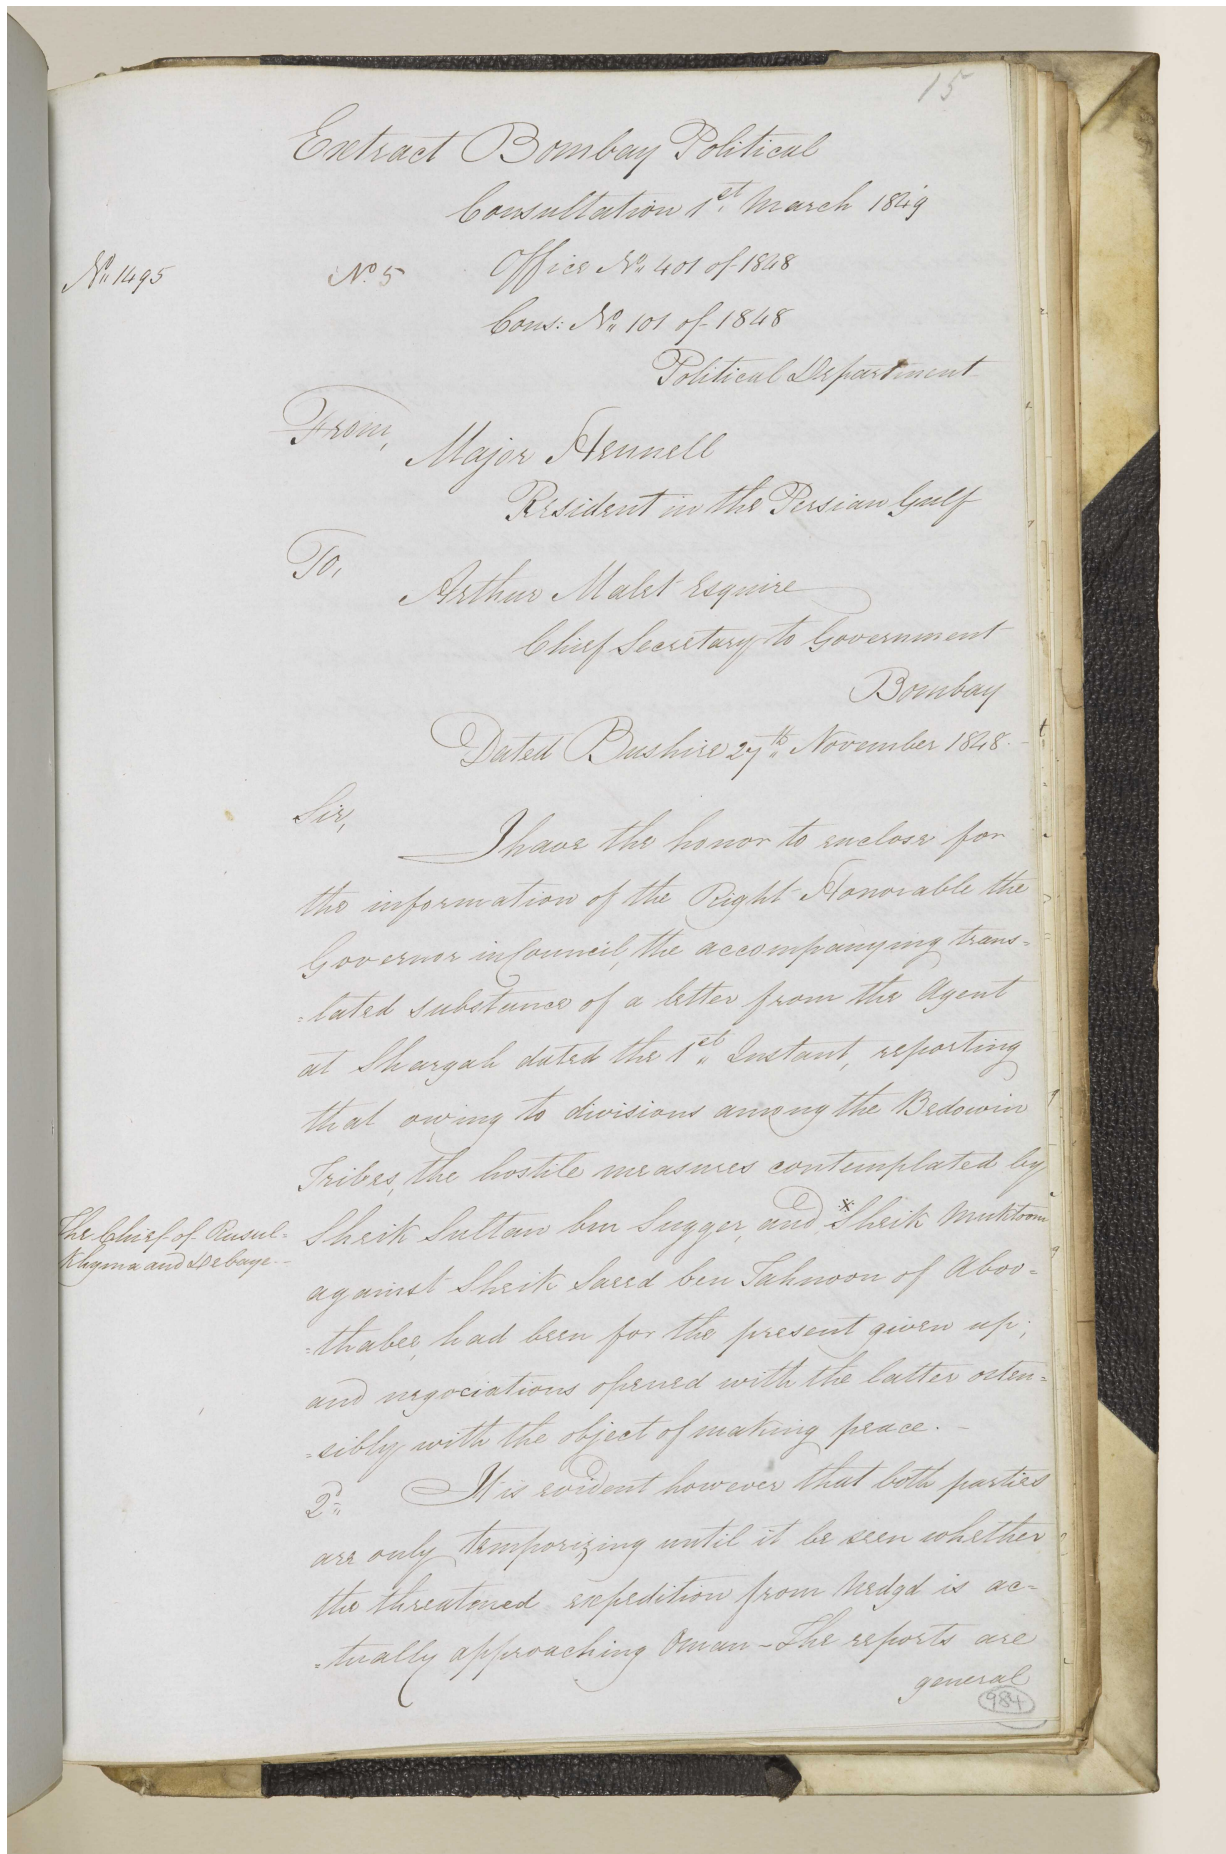 15
Extract Bombay Political
Consultation 1st March 1849
No. 1495
No. 5
Office No. 401 of 1848
Cons: No. 101 of 1848
Political Department
From,
Major Hennell
Resident in the Persian Gulf
To,
Arthur Malet Esquire
Chief Secretary to Government
Bombay
Dated Bushire 27th November 1848.
Sir,
I have the honor to enclose for
the information of the Right Honorable the
Governor in Council, the accompanying trans=
=lated substance of a letter from the Agent
at Shargah dated the 1st Instant, reporting
that owing to divisions among the Bedowin
Tribes, the hostile measures contemplated by
The Chief of Rusul=
Khyma and Debaye. -
Sheik Sultan bin Sugger, and * Sheik Muktoom
against Sheik Saeed ben Tahnoon of Aboo=
=thabee, had been for the present given up;
and negociations opened with the latter osten=
=sibly with the object of making peace. -
2d. It is evident however that both parties
are only temporizing until it be seen whether
the threatened expedition from Nedgd is ac=
=tually approaching Oman - The reports are
general
984